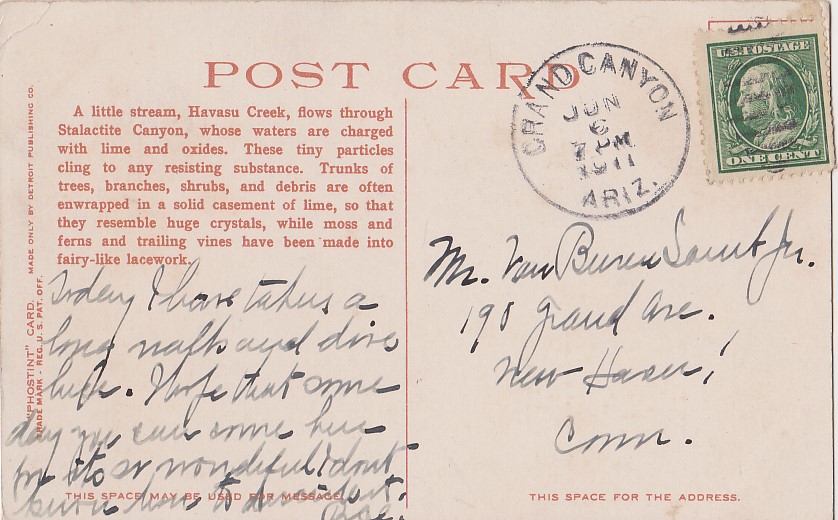 POST CARD
GRAND CANYON
JUN
6
7 PM
1911
ARIZ.
U.S. POSTAGE
ONE CENT
MADE ONLY BY DETROIT PUBLISHING CO.
"PHOSTINT" CARD.
TRADE MARK - REG. U. S. PAT. OFF.
A little stream, Havasu Creek, flows through
Stalactite Canyon, whose waters are charged
with lime and oxides. These tiny particles
cling to any resisting substance. Trunks of
trees, branches, shrubs, and debris are often
enwrapped in a solid casement of lime, so that
they resemble huge crystals, while moss and
ferns and trailing vines have been made into
fairy-like lacework.
Today I have taken a
long walk and
here. I hope that some
day we can come here
for its so wonderful I dont
know how to describe it.
THIS SPACE MAY BE USED FOR MESSAGE.
Mr. Van Buren Jr.
190 Grand Ave.
New Haven,
Conn.
THIS SPACE FOR THE ADDRESS.